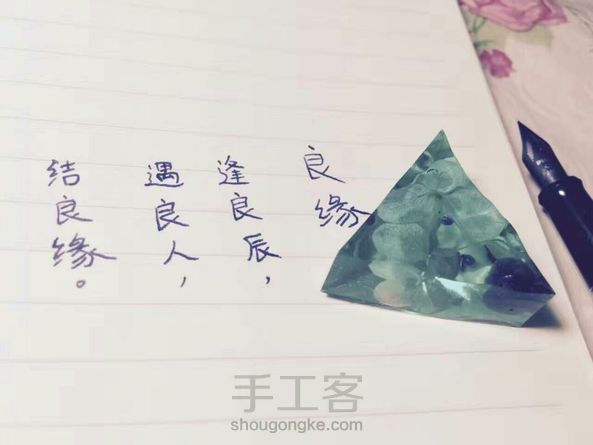 良缘
逢良辰，
遇良人，
结良缘。
手工客
shougongke.com